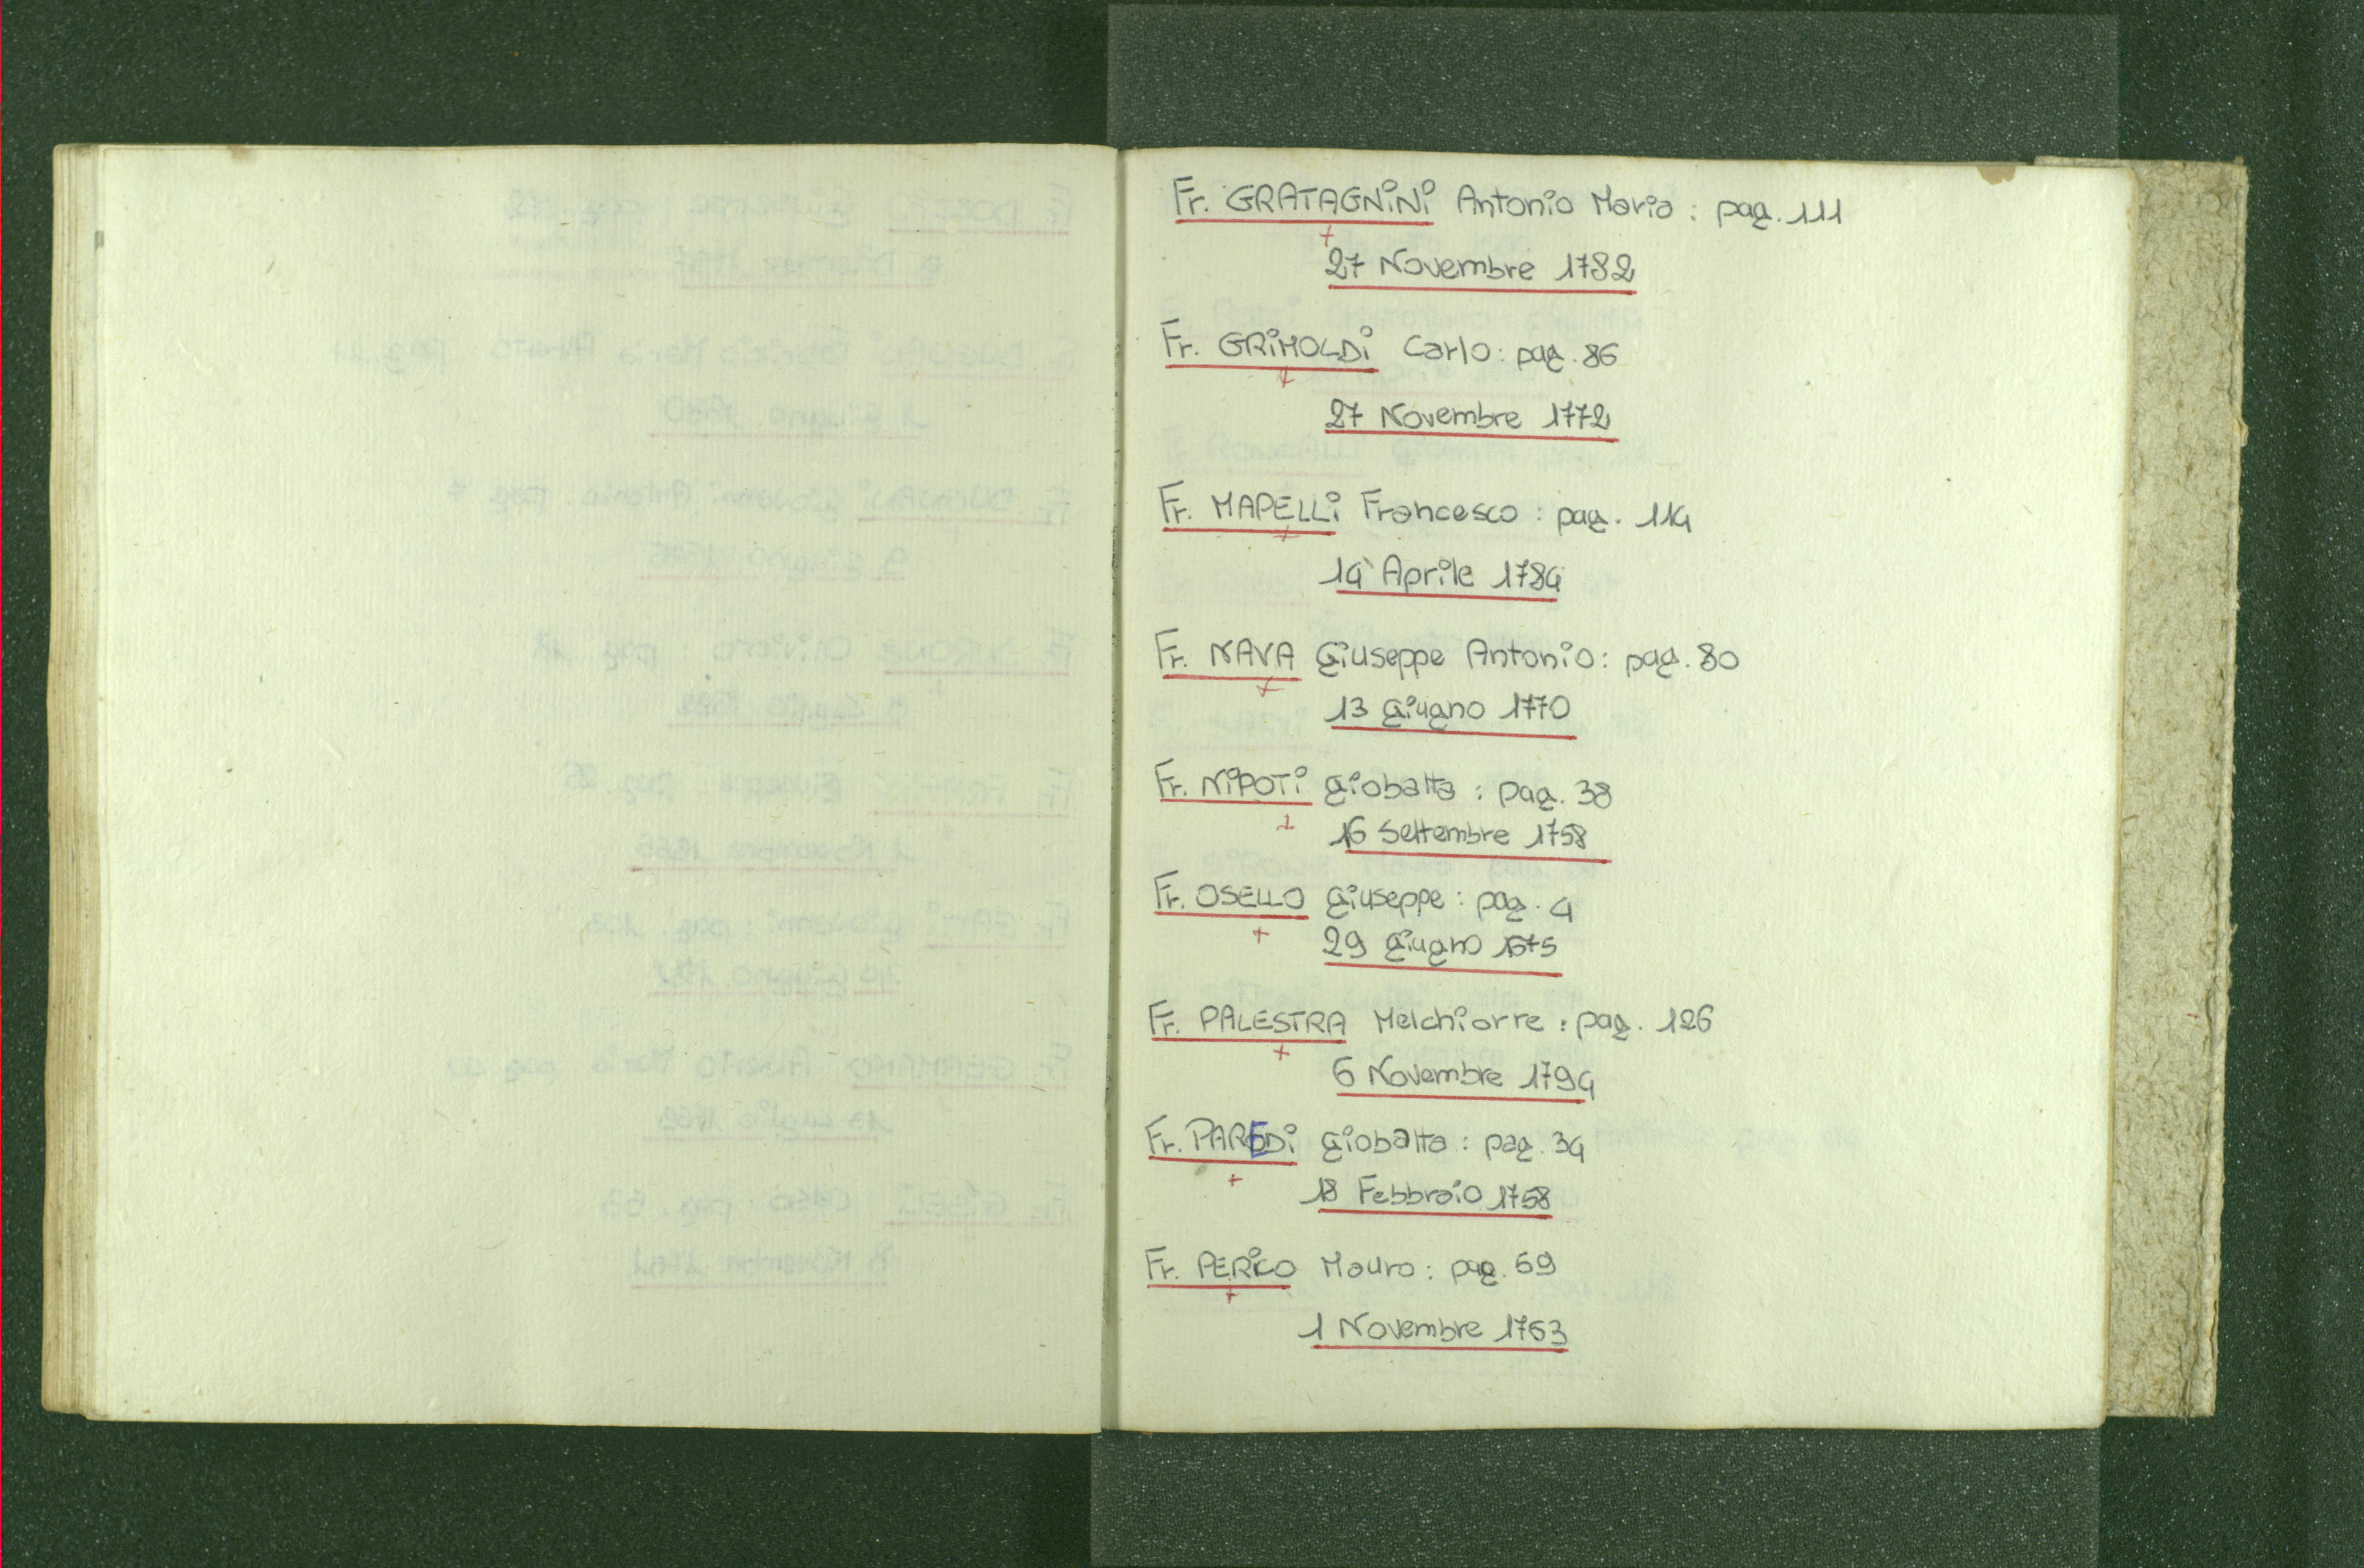 Fr. GRATAGNiNi Antonio Maria : pag. 111
+
27 Novembre 1782
Fr. GRiMOLDi Carlo : pag. 86
+
27 Novembre 1772
Fr. MAPELLi Francesco : pag. 114
+
14 Aprile 1784
Fr. NAVA Giuseppe Antonio : pag. 80
+
13 giugno 1770
Fr. NiPOTi giobatta : pag. 38
+
16 Settembre 1758
Fr. OSELLO giuseppe : pag. 4
+
29 giugno 1675
Fr. PALESTRA Melchiorre : pag. 126
+
6 Novembre 1794
Fr. PAREDi giobatta : pag. 34
+
18 Febbraio 1758
Fr. PERiCO Mauro : pag. 69
+
1 Novembre 1763